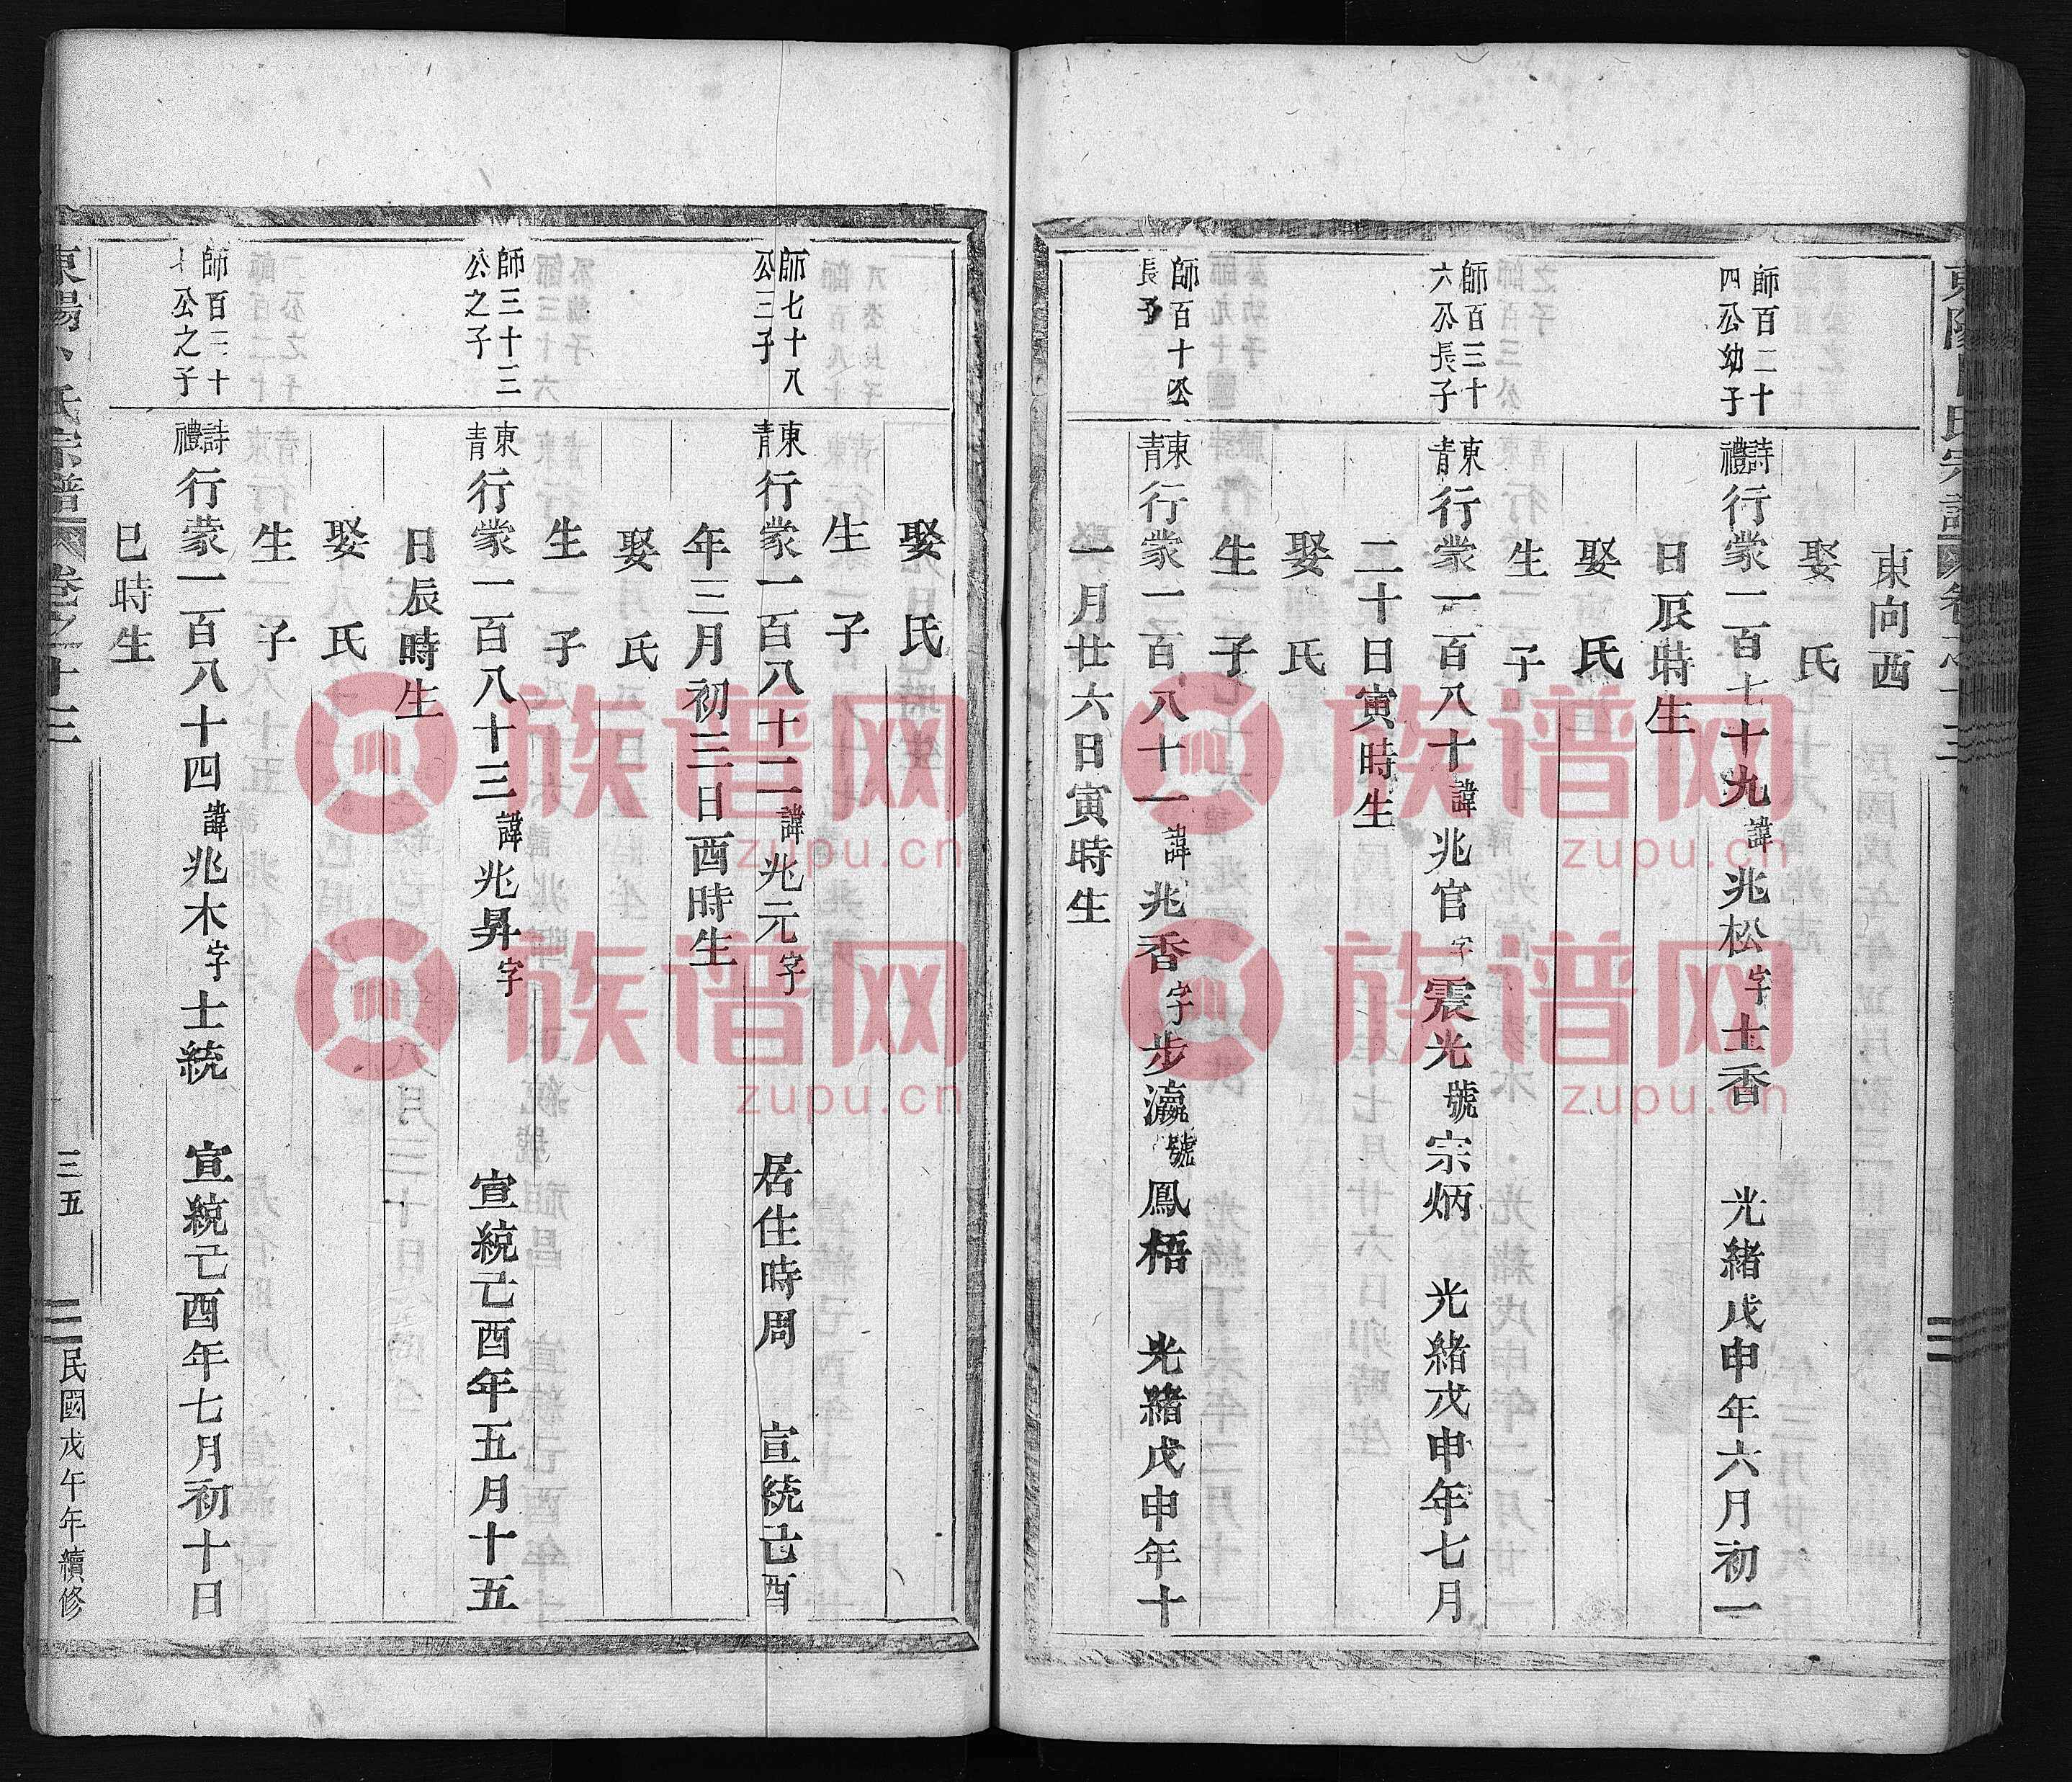 東向西
娶 氏
師百二十四公幼子
詩禮行蒙一百七十九諱兆松字士香 光緒戊申年六月初一
日辰時生
娶 氏
生 子
師百三十六公長子
東青行蒙一百八十諱兆官字震光號宗炳 光緒戊申年七月
二十日寅時生
娶 氏
生 子
師百十公長子
東青行蒙一百八十一諱兆香字步瀛號鳳梧 光緒戊申年十
一月廿六日寅時生
娶 氏
生 子
師七十八公三子
東青行蒙一百八十二諱兆元字 居住時周 宣統己酉
年三月初三日酉時生
娶 氏
生 子
師三十三公之子
東青行蒙一百八十三諱兆昇字 宣統己酉年五月十五
日辰時生
娶 氏
生 子
師百二十公之子
詩禮行蒙一百八十四諱兆木字士統 宣統己酉年七月初十日
巳時生
氏宗譜 卷之十三 三五 民國戊午年續修
族谱网
zupu.cn
族谱网
zupu.cn
族谱网
zupu.cn
族谱网
zupu.cn